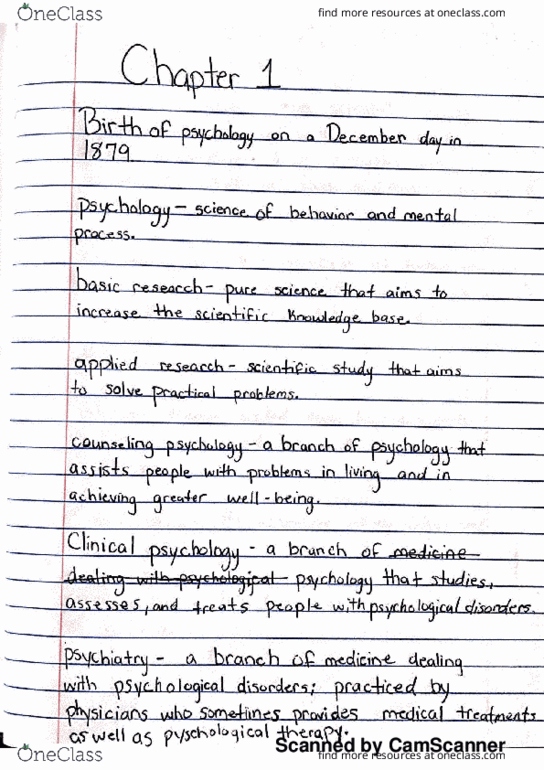 OneClass
find more resources at oneclass.com
Chapter 1
Birth of psychology on a December day in
1879
psychology - science of behavior and mental
process.
basic research - pure science that aims to
increase the scientific knowledge base.
applied research - scientific study that aims
to solve practical problems.
counseling psychology - a branch of psychology that
assists people with problems in living and in
achieving greater well-being.
Clinical psychology - a branch of medicine
dealing with psychological psychology that studies,
assesses, and treats people with psychological disorders.
psychiatry - a branch of medicine dealing
with psychological disorders; practiced by
physicians who sometimes provides medical treatments
as well as pyschological therapy.
Scanned by CamScanner
OneClass
find more resources at oneclass.com